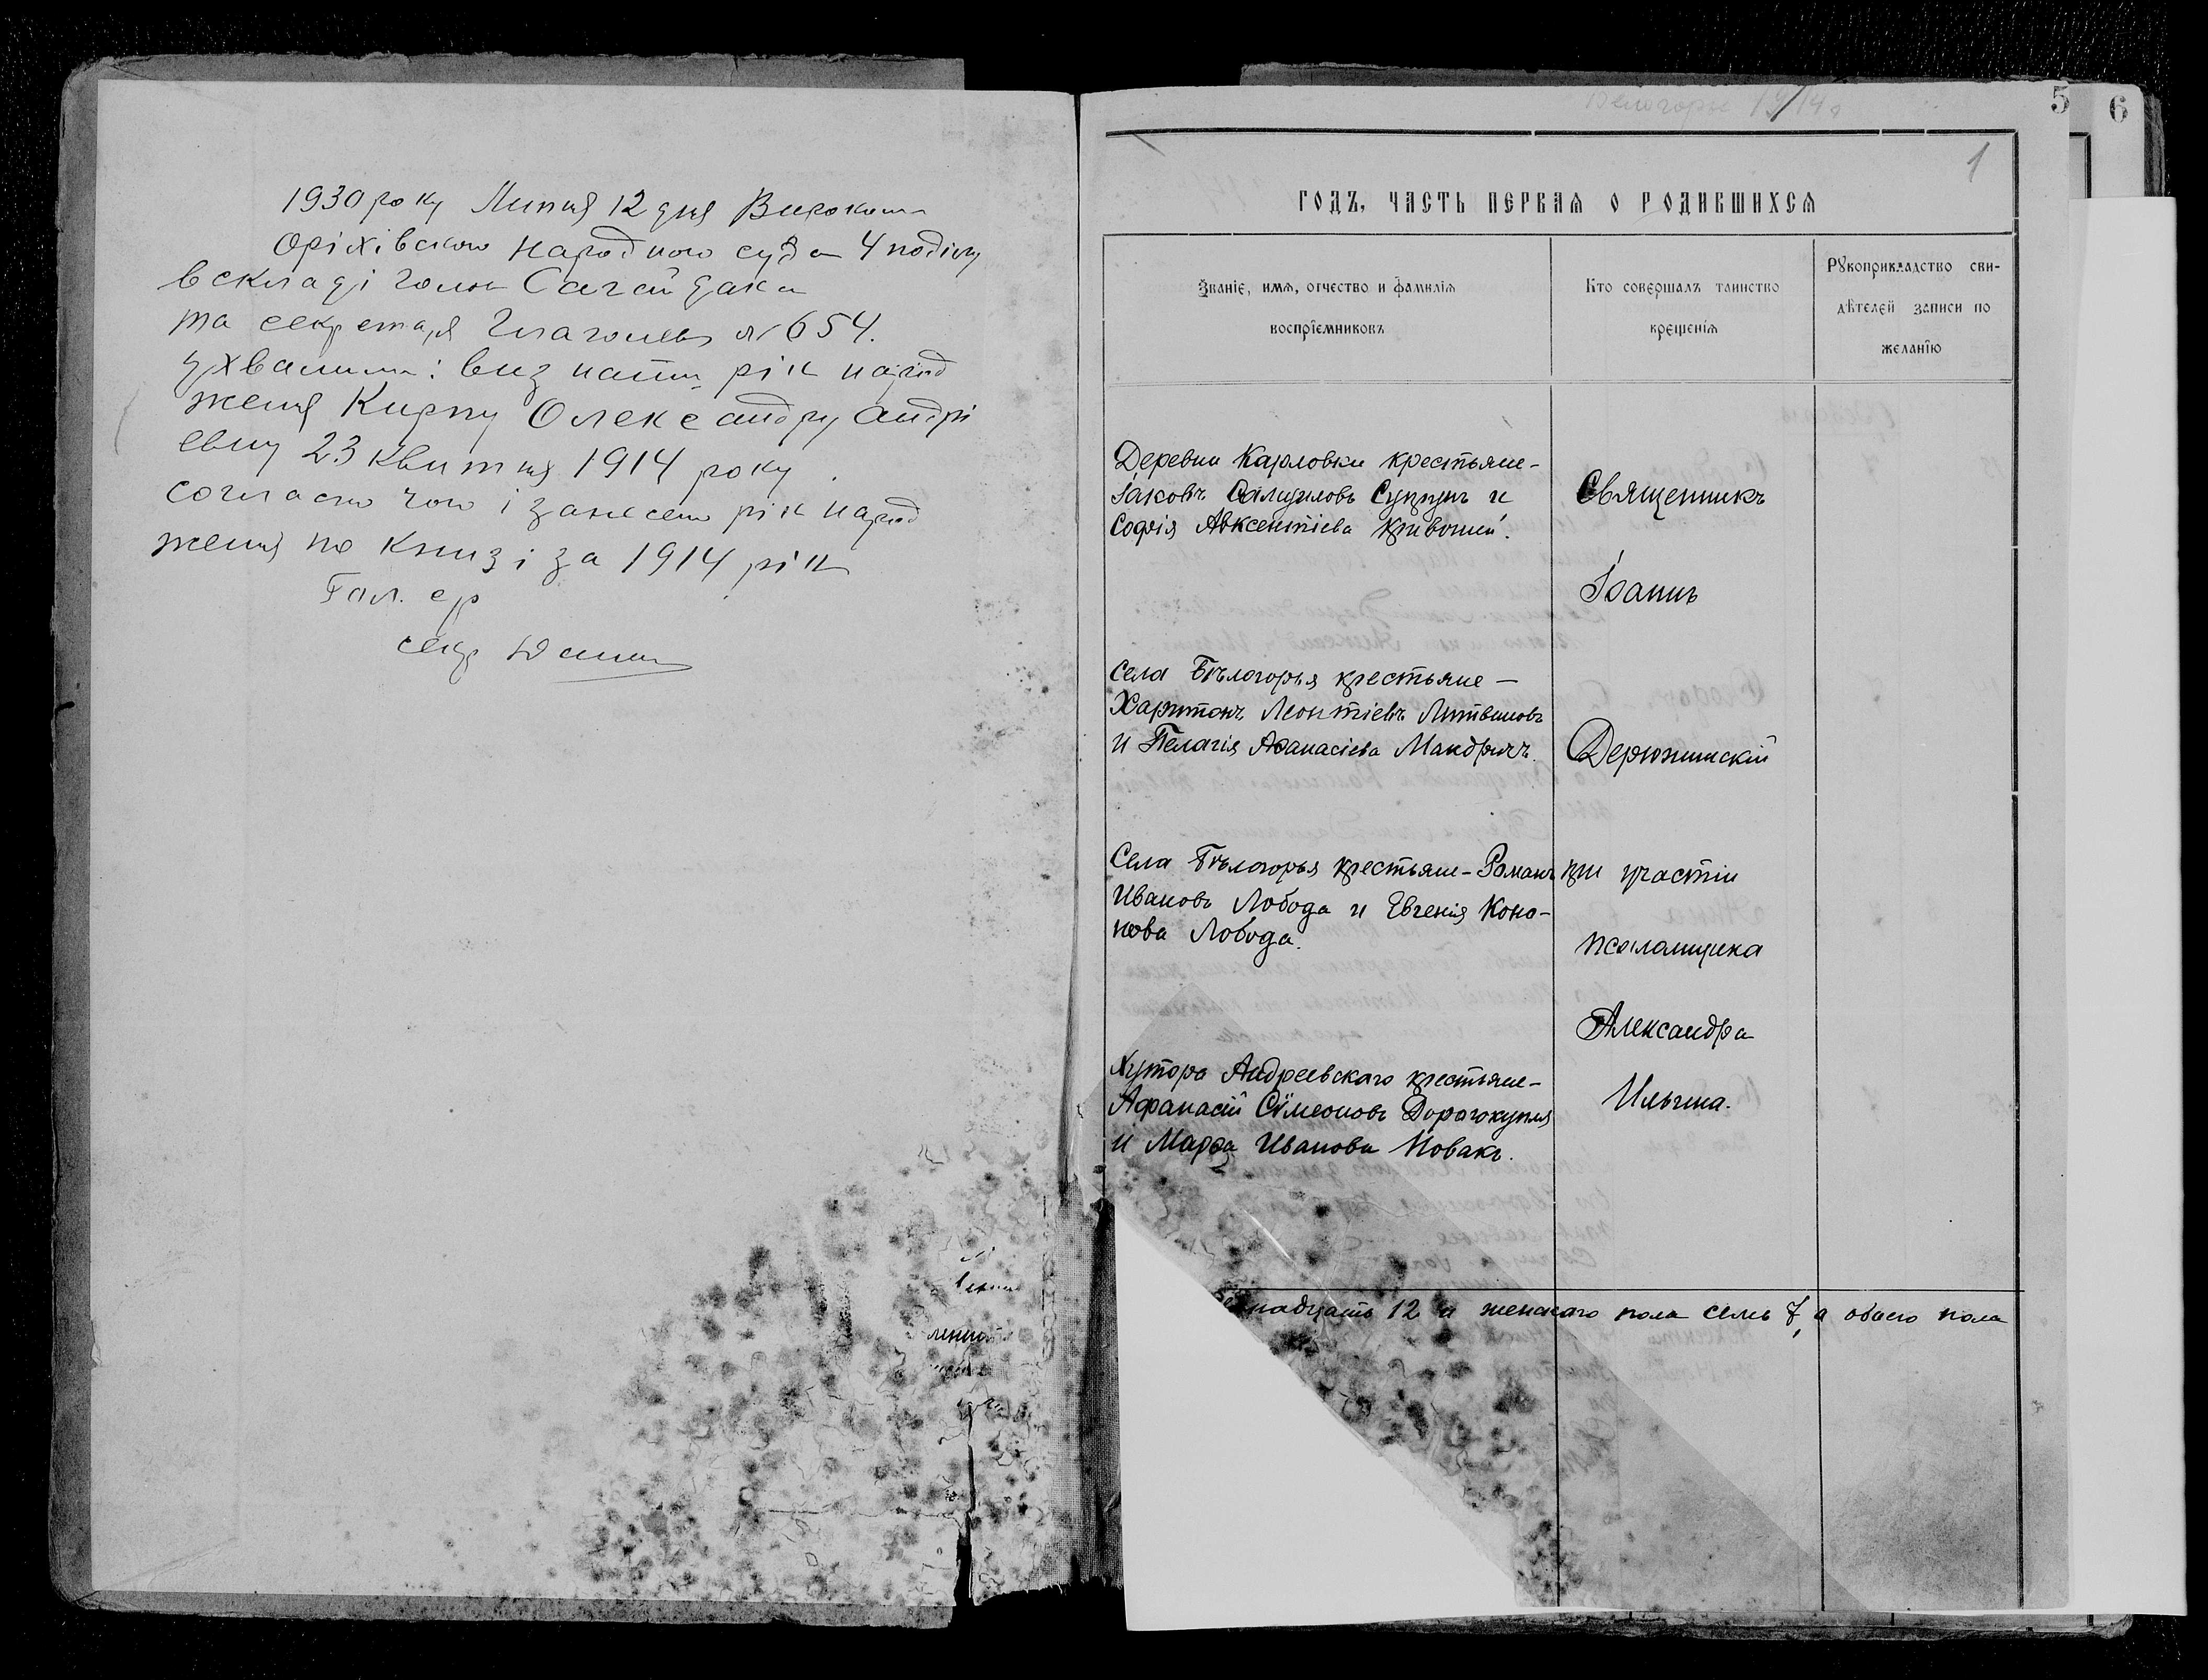 1930 року Липня 12 дня Вироком
Оріхівського народного суда 4 поділу
в складі голов Сагайдака
та секретаря № 654.
ухвалили: визнати рік народ
ження Кирпу Олександру Андрі
евну 23 квитня 1914 року
согласно чого і занесено рік народ
ження по книзі за 1914 рік
Гол. с/р
секр
5
6
Белогорье 1914 г
1
ГОДЪ, ЧАСТЬ ПЕРВАЯ О РОДИВШИХСЯ
Званіе, имя, отчество и фамилія
воспріемниковъ
Кто совершалъ таинство
крещенія
Рукоприкладство сви-
дѣтелей записи по
желанію
Деревни Карловки крестьяне-
Іаковъ Самуиловъ Супрунъ и
Софія Авксентіева Кривошей.
Священникъ
Іоаннъ
Села Бѣлогорья крестьяне-
Харитонъ Леонтіевъ Литвиновъ
и Пелагія Аѳанасіева Мандричъ.
Дерюжинскій
Села Бѣлогорья крестьяне-Романъ
Ивановъ Лобода и Евгенія Коно-
нова Лобода.
при участіи
псаломщика
Александра
Ильина.
Хутора Андреевскаго крестьяне-
Афанасій Сѵмеоновъ Дорогокупля
и Марѳа Иванова Новакъ.
надцать 12 и женскаго пола семь 7, а обоего пола